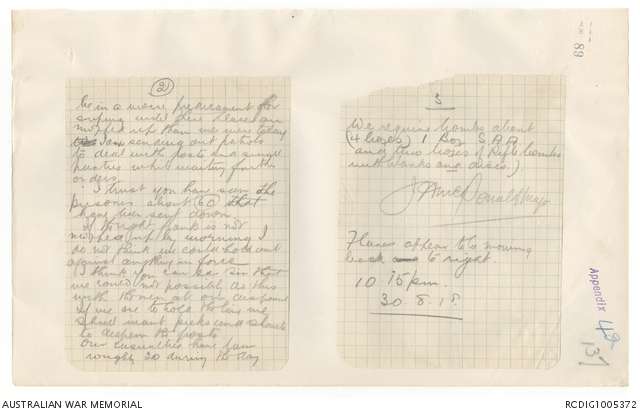 2
be in a worse predicament for
sniping until dark leave an
mopped up than we were today
I am sending out patrols
to deal with posts and small
parties whilst waiting further
orders.
I trust you have seen the
prisoners about 60 that
have been sent down.
If right flank is not
mopped up by morning I
do not think we could hold out
against anything in force
I think you can see Sir that
we could not possibly do this
with the men at our disposal
If we are to hold on this line
I shall want picks and shovels
to deepen the posts
Our casualties have been
roughly 30 during the day
3
We require bombs about
(4 boxes) 1 Box S.A.A
and two boxes of Rifle bombs
with blanks and discs)
Major
Flares appear to b moving
back to right.
10 15 pm.
30 8 18
89
Appendix
42
137
AUSTRALIAN WAR MEMORIAL
RCDIG1005372